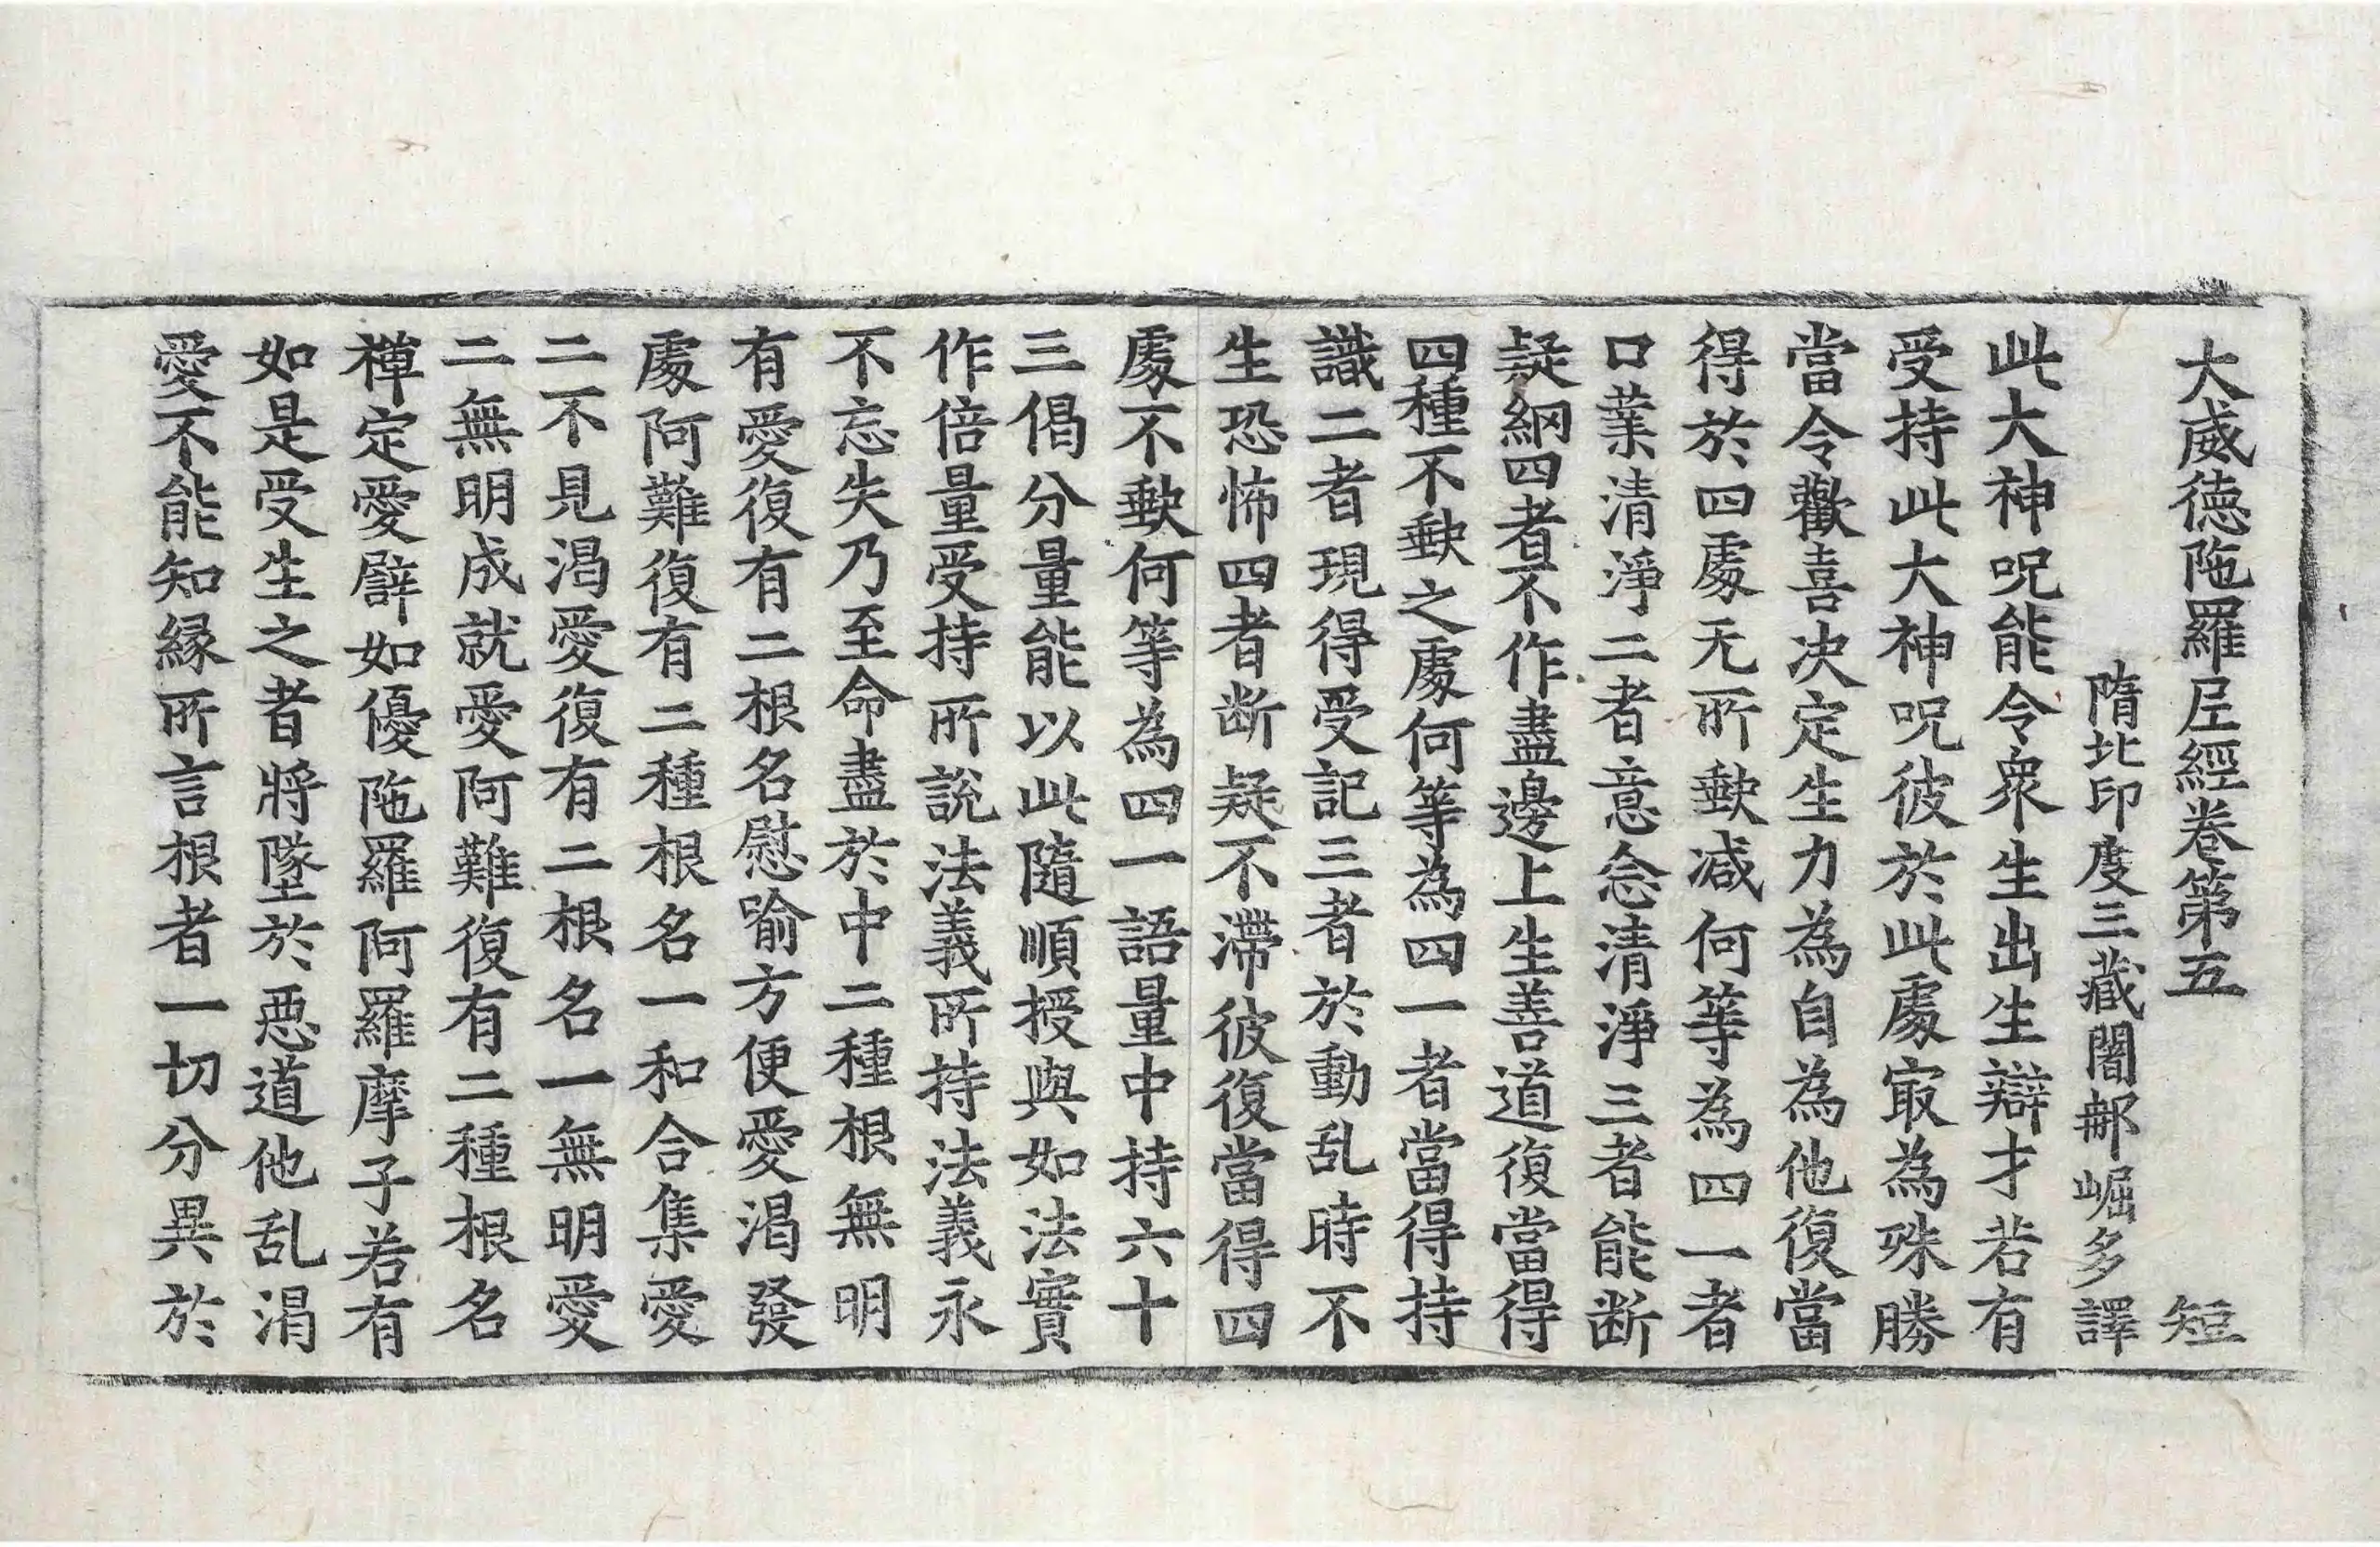 大威德陁羅尼經卷第五 短
隋北印度三藏闍那崛多譯
此大神呪能令衆生出生辯才若有
受持此大神呪彼於此處㝡為殊勝
當令歡喜决定生力為自為他復當
得於四處无所歁减何等為四一者
口業清淨二者意念清淨三者能断
疑網四者不作盡邊上生善道復當得
四種不歁之處何等為四一者當得持
識二者現得受記三者於動乱時不
生恐怖四者断疑不滯彼復當得四
處不歁何等為四一語量中持六十
三偈分量能以此隨順授與如法實
作倍量受持所說法義所持法義永
不忘失乃至命盡於中二種根無明
有愛復有二根名慰喻方便愛渴發
處阿難復有二種根名一和合集愛
二不見渴愛復有二根名一無明愛
二無明成就愛阿難復有二種根名
禪定愛譬如優陁羅阿羅摩子若有
如是受生之者將墜於惡道他乱渴
愛不能知緣所言根者一切分異於